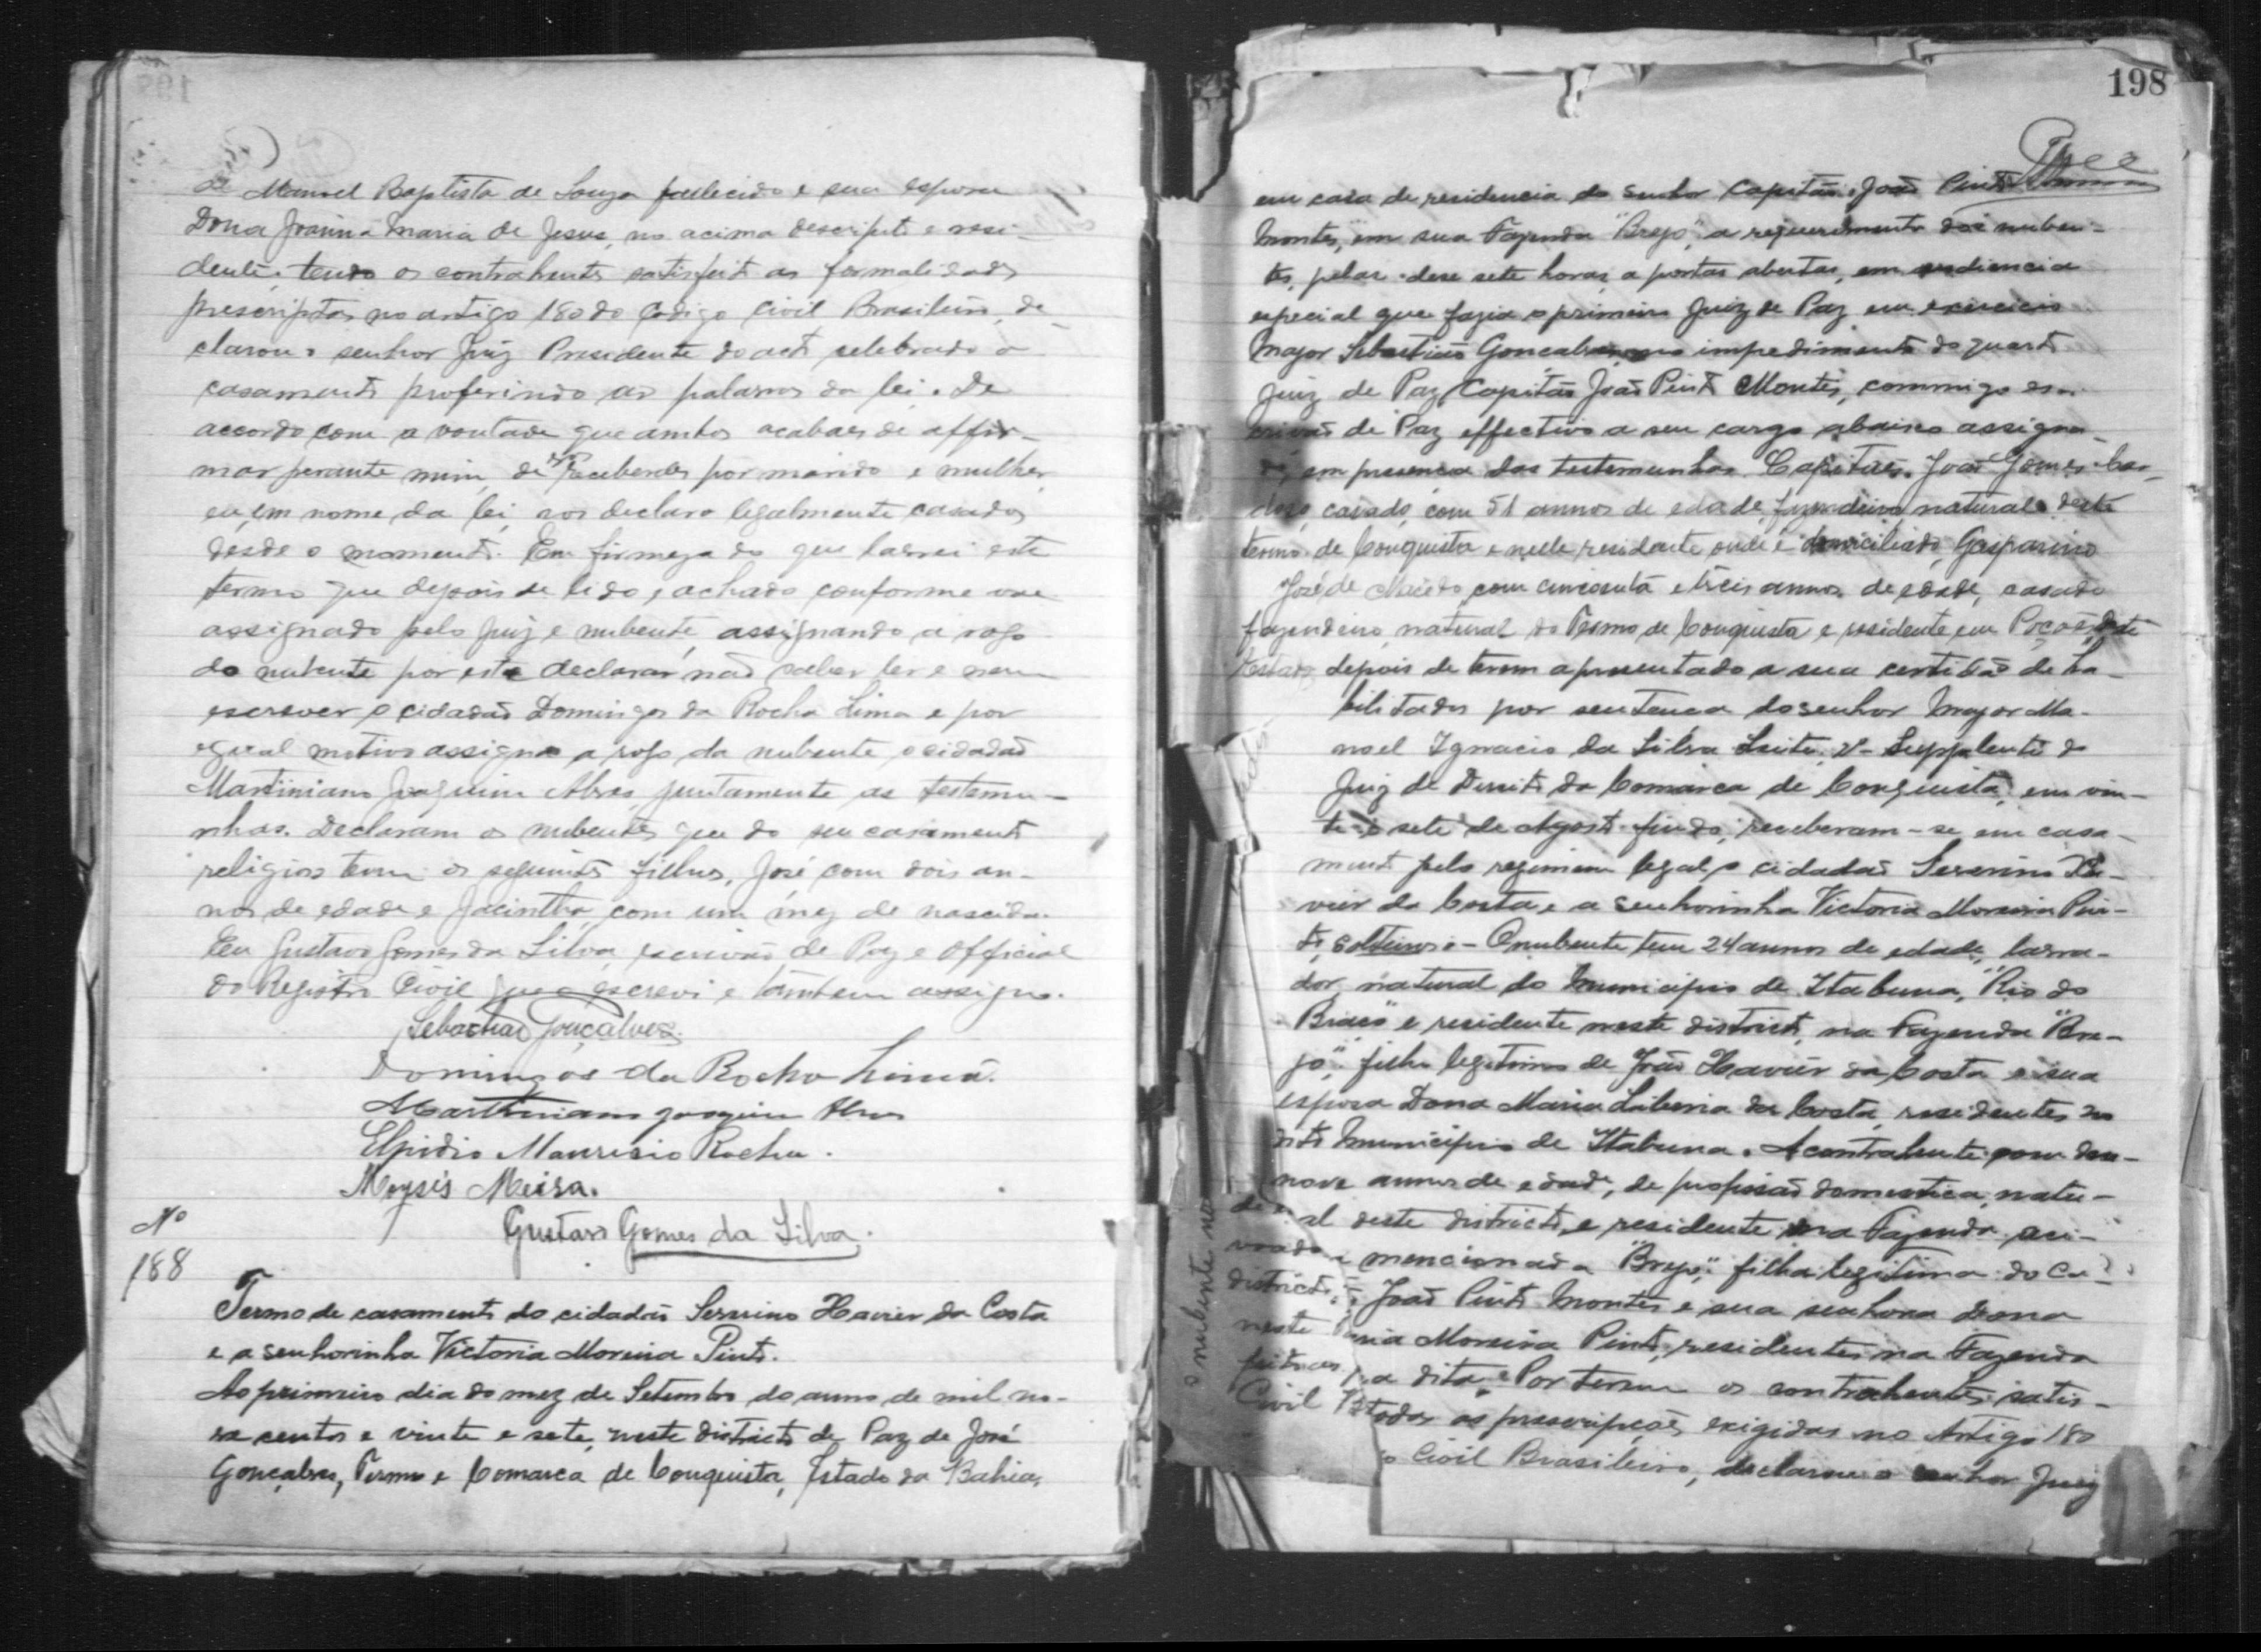 de Manoel Baptista de Souza fallecido e sua esposa
Dona Joanna Maria de Jesus, no acima descripto e resi-
dente. tendo os contrahentes satisfeito as formalidades
prescriptas no artigo 180 do Codigo Civil Brasileiro, de-
clarou o senhor Juiz Presidente do acto celebrado o
casamento proferindo as palavras da lei. De
accordo com a vontade que ambos acabaes de affir-
mar perante mim, de vos receberdes por marido e mulher,
eu, em nome da lei vos declaro legalmente casados
desde o momento. Em firmeza do que lavrei este
termo que depois de lido e achado conforme vae
assignado pelo Juiz e nubente, assignando a rogo
do nubente por este declarar não saber ler e nem
escrever o cidadão Domingos da Rocha Lima e por
egual motivo assigna a rogo da nubente o cidadão
Martiniano Joaquim Alves, juntamente as testemu-
nhas. Declaram os nubentes que do seu casamento
religioso teem os seguintes filhos, José com dois an-
nos de edade e Jacintha, com um mez de nascida.
Eu Gustavo Gomes da Silva, escrivão de Paz e Official
do Registro Civil que o escrevi e tambem assigno.
Sebastião Gonçalves
Domingos da Rocha Lima.
Marthiniano Joaquim Alves
Elpidio Mauricio Rocha.
Moysés Meira.
Gustavo Gomes da Silva.
Nº
188
Termo de casamento do cidadão Serino Xavier da Costa
e a senhorinha Victoria Moreira Pinto.
Ao primeiro dia do mez de Setembro do anno de mil no-
ve centos e vinte e sete, neste districto de Paz de José
Gonçalves, Termo e Comarca de Conquista, Estado da Bahia,
198
em casa de residencia do senhor Capitão João Pinto
Montes, em sua Fazenda "Brejo", a requerimento dos nuben-
tes, pelas dese sete horas, a portas abertas, em audiencia
especial que fazia o primeiro Juiz de Paz em exercicio
Major Sebastião Goncalves, no impedimento do quarto
Juiz de Paz Capitão João Pinto Montes, commigo es-
crivão de Paz effectivo a seu cargo abaixo assigna-
do, em presença das testemunhas Capitães João Gomes Car-
doso, casado, com 51 annos de edade, fazendeiro natural deste
termo de Conquista e nelle residente onde é domiciliado, Gasparino
José de Macêdo com cincoenta e treis annos de edade, casado
fazendeiro natural do Termo de Conquista e residente em Poções deste
Estado, depois de terem apresentado a sua certidão de ha-
bilitados por sentenca do senhor Major Ma-
noel Ignacio da Silva Leite, 2º Supplente do
Juiz de Direito da Comarca de Conquista, em vin-
te e sete de Agosto findo, receberam-se em casa-
mento pelo regimem legal, o cidadão Serino Xa-
vier da Costa e a senhorinha Victoria Moreira Pin-
to, solteiros. - O nubente tem 24 annos de edade, lavra-
dor, natural do Municipio de Itabuna, "Rio do
Braço" e residente neste districto, na Fazenda "Bre-
jo", filho legitimo de João Xavier da Costa e sua
esposa Dona Maria Liberia da Costa, residentes no
dito Municipio de Itabuna. A contrahente com dese-
nove annos de edade, de profissão domestica, natu-
ral deste districto, e residente na Fazenda aci-
ma mencionada "Brejo", filha legitima do Ca-
João Pinto Montes e sua senhora Dona
Moreira Pinto, residentes na Fazenda
dita. Por terem os contrahentes satis-
todas as prescripções exigidas no Artigo 180
Civil Brasileiro, declarou o senhor Juiz
o nubente no
districto
neste
Civil